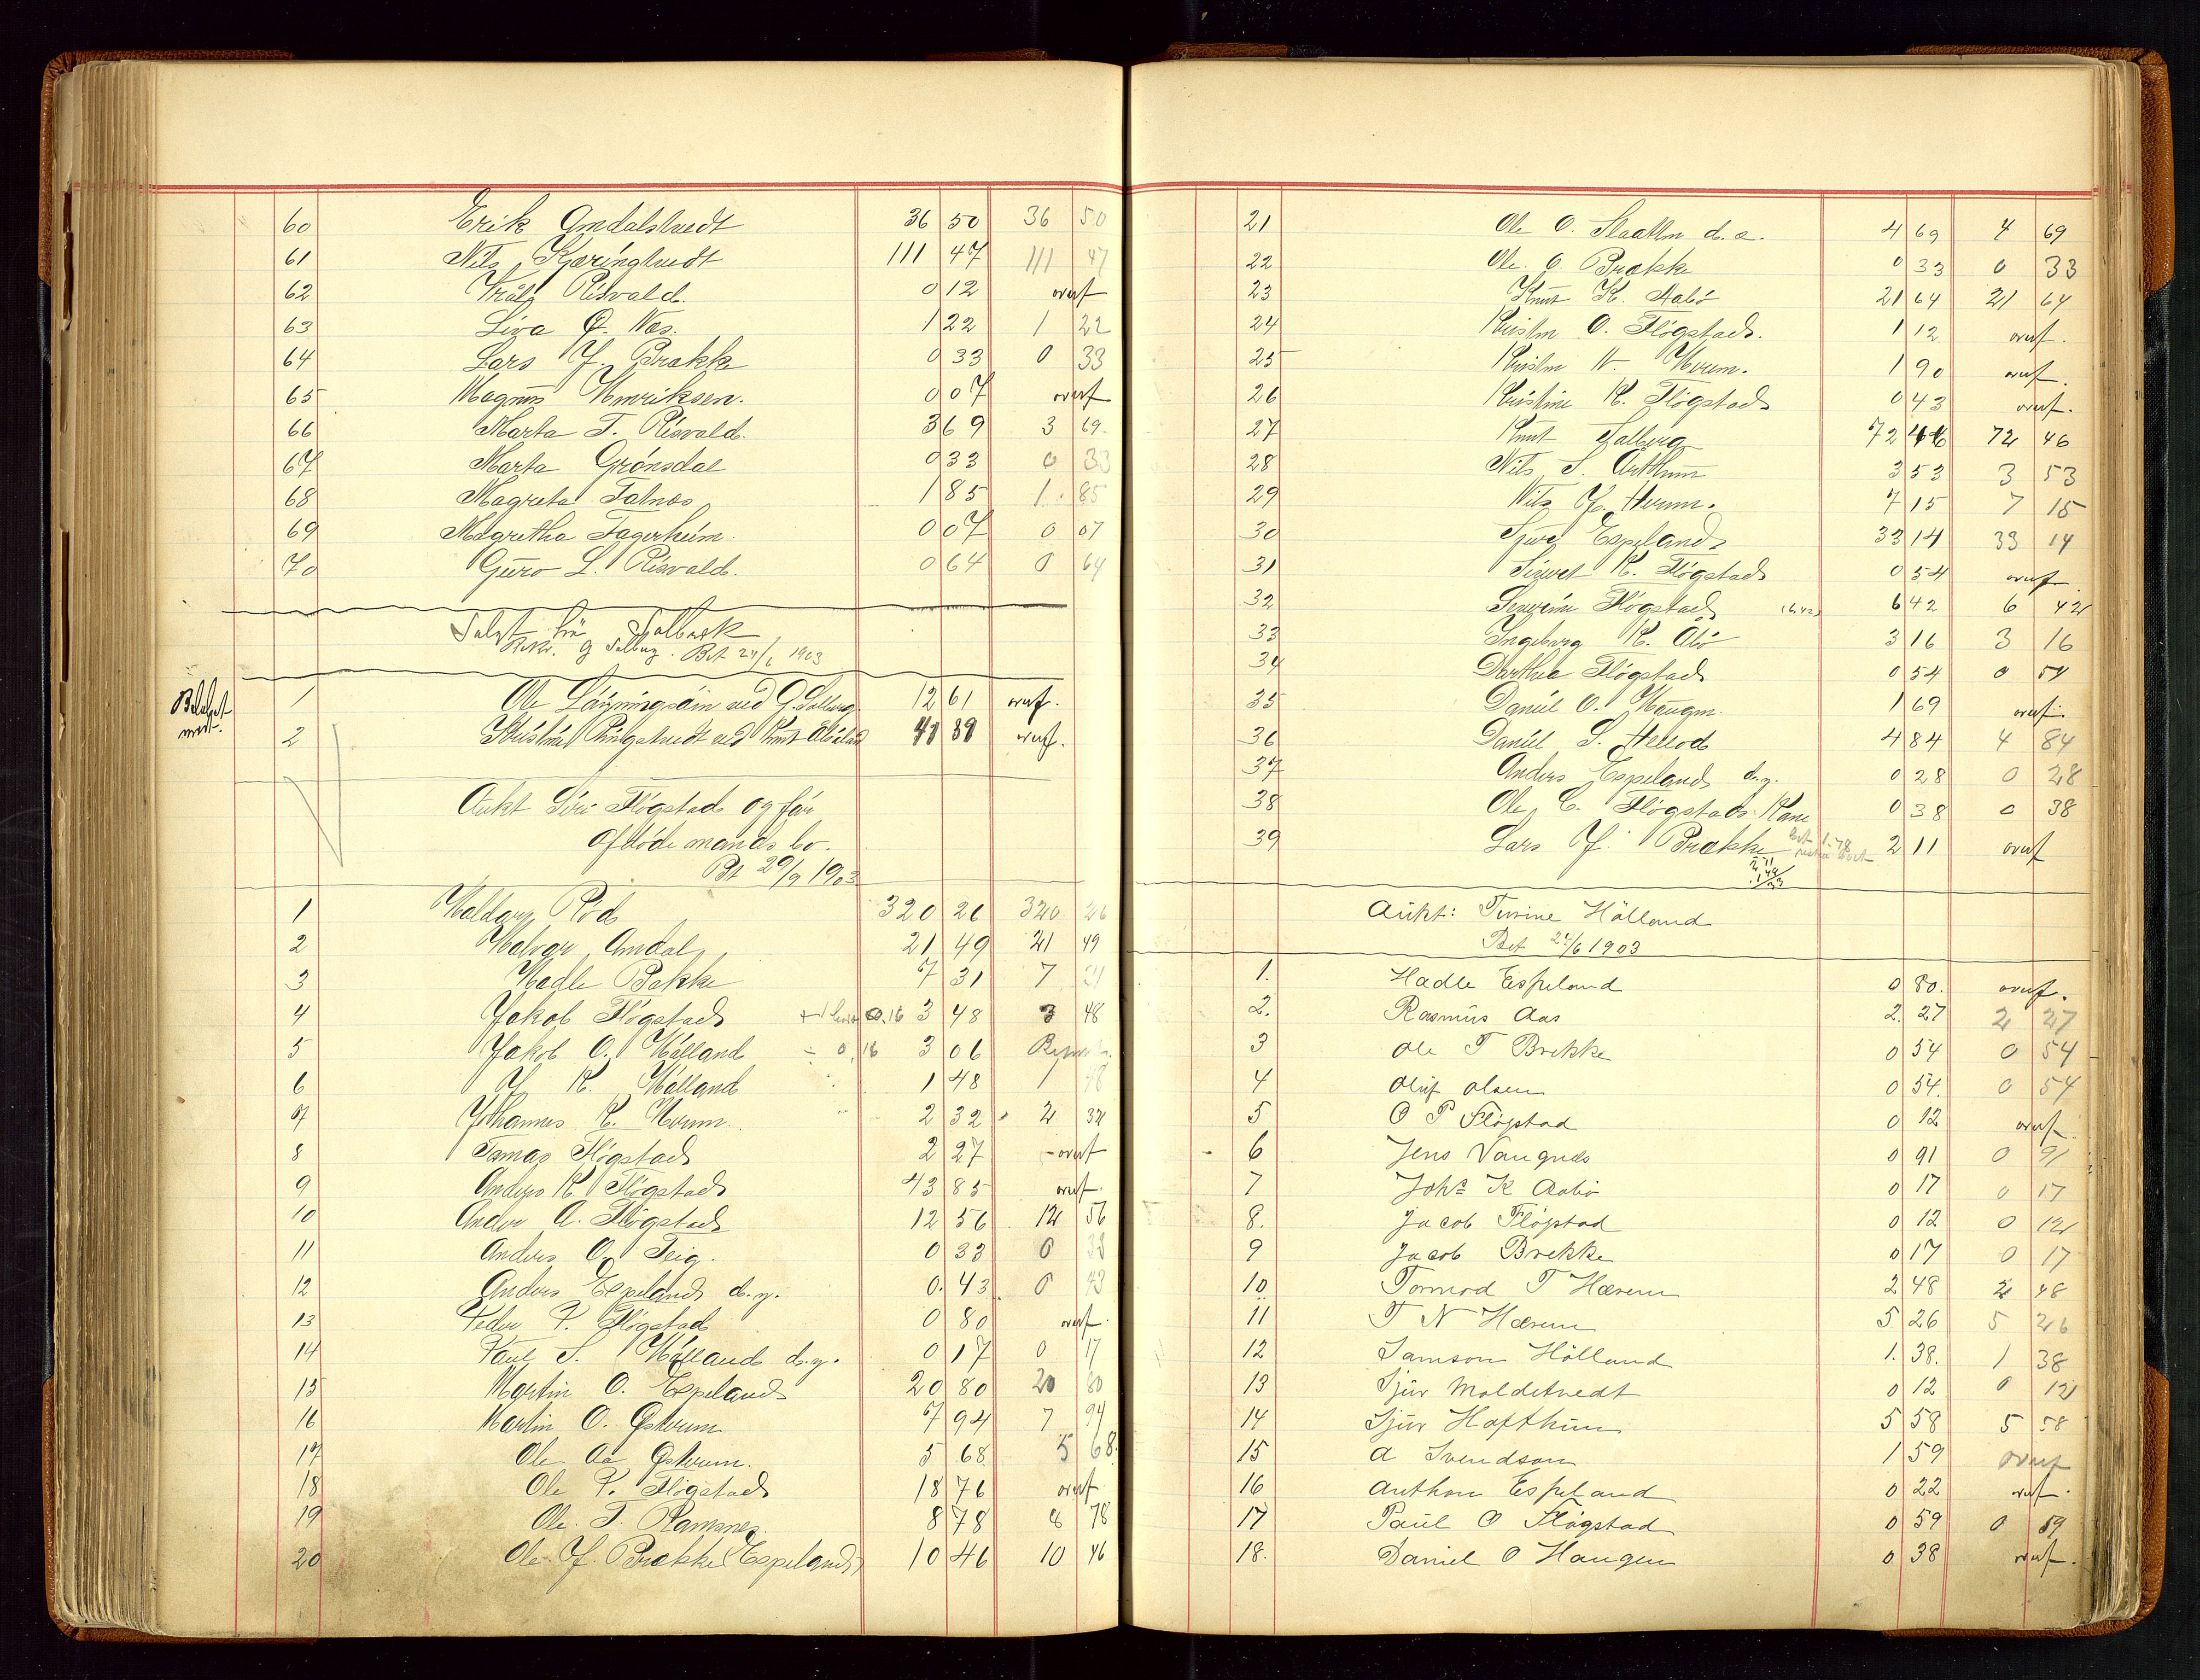 60 Erik Amdalstvedt 36 50 36 50
61 Nils Kjæringtvedt 111 47 111 47
62 Risvald. 0 12 overf
63 Siva Næs. 1 22 1 22
64 Lars J. Brakke 0 33 0 33
65 Magnus Henriksen. 0 07 overf
66 Marta T. Risvald. 3 69 3 69
67 Marta Grönsdal 0 33 0 33
68 Magreta Falnæs 1 85 1 85
69 Magretha Fagerheim. 0 07 0 07
70 Guro L. Risvald. 0 64 0 64
Bet 24/6 1903
1 Ole ved G. 12 61 overf.
2 ved Knut 41 39 overf.
Aukt Siri Flógstad og før
Afdöde mands bo.
Bt 29/9 1903
1 Haldor Röd 320 26 320 26
2 Halvor Amdal 21 49 21 49
3 Hadle Bakke 7 31 7 31
4 Jakob Flógstad 0.16 3 48 3 48
5 Jakob O. Hålland ÷ 0,16 3 06
6 J. K. Hålland 1 48 1 48
7 Johannes K. Hærum 2 32 2 32
8 Tomas Flógstad 2 27 overf
9 Anders K. Flógstad 43 85 overf.
10 Anders A. Flógstad 12 56 12 56
11 Anders O. Teig. 0 33 0 33
12 Anders Espeland d.y. 0. 43 0 43
13 Peder P. Flógstad 0 80 overf.
14 Paul S. Hålland d.y. 0 17 0 17
15 Martin O. Espeland 20 80 20 80
16 Martin O. Østerum 7 94 7 94
17 Ole Aa Østerum. 5 68 5 68.
18 Ole P. Flógstad 18 76 overf.
19 Ole. T. Ramsnes. 8 78 8 78
20 Ole J. Brakke (Espeland) 10 46 10 46
21 Ole O. d. e. 4 69 4 69
22 Ole. O. Brakke 0 33 0 33
23 Knut K. Aabö 21 64 21 64
24 O. Flógstad. 1 12 overf.
25 Hærum. 1 90 overf.
26 Kristine K. Flógstad 0 43 overf.
27 Knut 72 46 72 46
28 Nils S. 3 53 3 53
29 Nils J. Hærum. 7 15 7 15
30 Sjur Espeland 33 14 33 14
31 Sivert K. Flógstad 0 54 overf.
32 Severine Flógstad (6,42) 6 42 6 42
33 Ingeborg K. Åbö 3 16 3 16
34 Dorthea Flógstad 0 54 0 54
35 Daniel O. Haugen. 1 69 overf.
36 Daniel S. 4 84 4 84
37 Anders Espeland d.y. 0 28 0 28
38 Ole C. Flógstads Kone 0 38 0 38
39 Lars J. Brakke 2 11 overf
Aukt: Turine Hölland
Bet 24/6 1903
1. Hadle Espeland 0 80. overf.
2. Rasmus Aas 2. 27 2 27
3 Ole T Brekke 0 54 0 54
4 Oluf Olsen 0 54. 0 54
5 O P Flógstad 0 12 overf.
6 Jens Vangnes 0 91 0 91
7 Johs K Aabö 0 17 0 17
8. Jacob Flógstad 0 12 0 12
9 Jacob Brekke 0 17 0 17
10 Tormod T Hærem 2 48 2 48
11 T N Hærem 5 26 5 26
12 Samson Hölland 1. 38. 1 38
13 Sjur Moldetvedt 0 12 0 12
14 Sjur Hafthun 5 58 5 58
15 A Svendson 1 59 overf
16 Anthon Espeland 0 22 overf.
17 Paul O Flógstad 0 59 0 59
18. Daniel O Haugen 0 38 overf.